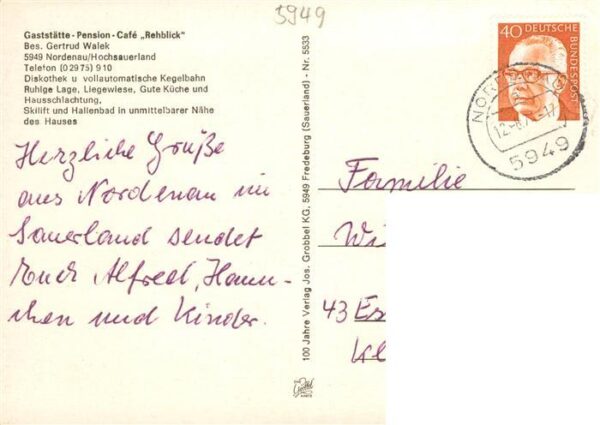 5949
Gaststätte - Pension - Café „Rehblick"
Bes. Gertrud Walek
5949 Nordenau/Hochsauerland
Telefon (0 29 75) 9 10
Diskothek u vollautomatische Kegelbahn
Ruhige Lage, Liegewiese, Gute Küche und
Hausschlachtung,
Skilift und Hallenbad in unmittelbarer Nähe
des Hauses
Herzliche Grüße
aus Nordenau im
Sauerland sendet
Euch Alfred, Hann-
chen und Kinder.
100 Jahre Verlag Jos. Grobbel KG, 5949 Fredeburg (Sauerland) - Nr. 5533
40
DEUTSCHE
BUNDESPOST
5949
Familie
Wi
43 Es
Kl